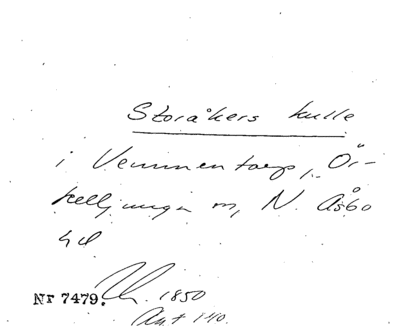 Storåkers kulle
i Vemmentorp, Ör-
kelljunga sn, N. Åsbo
hd
Nr 7479. 1850
Ant 140.